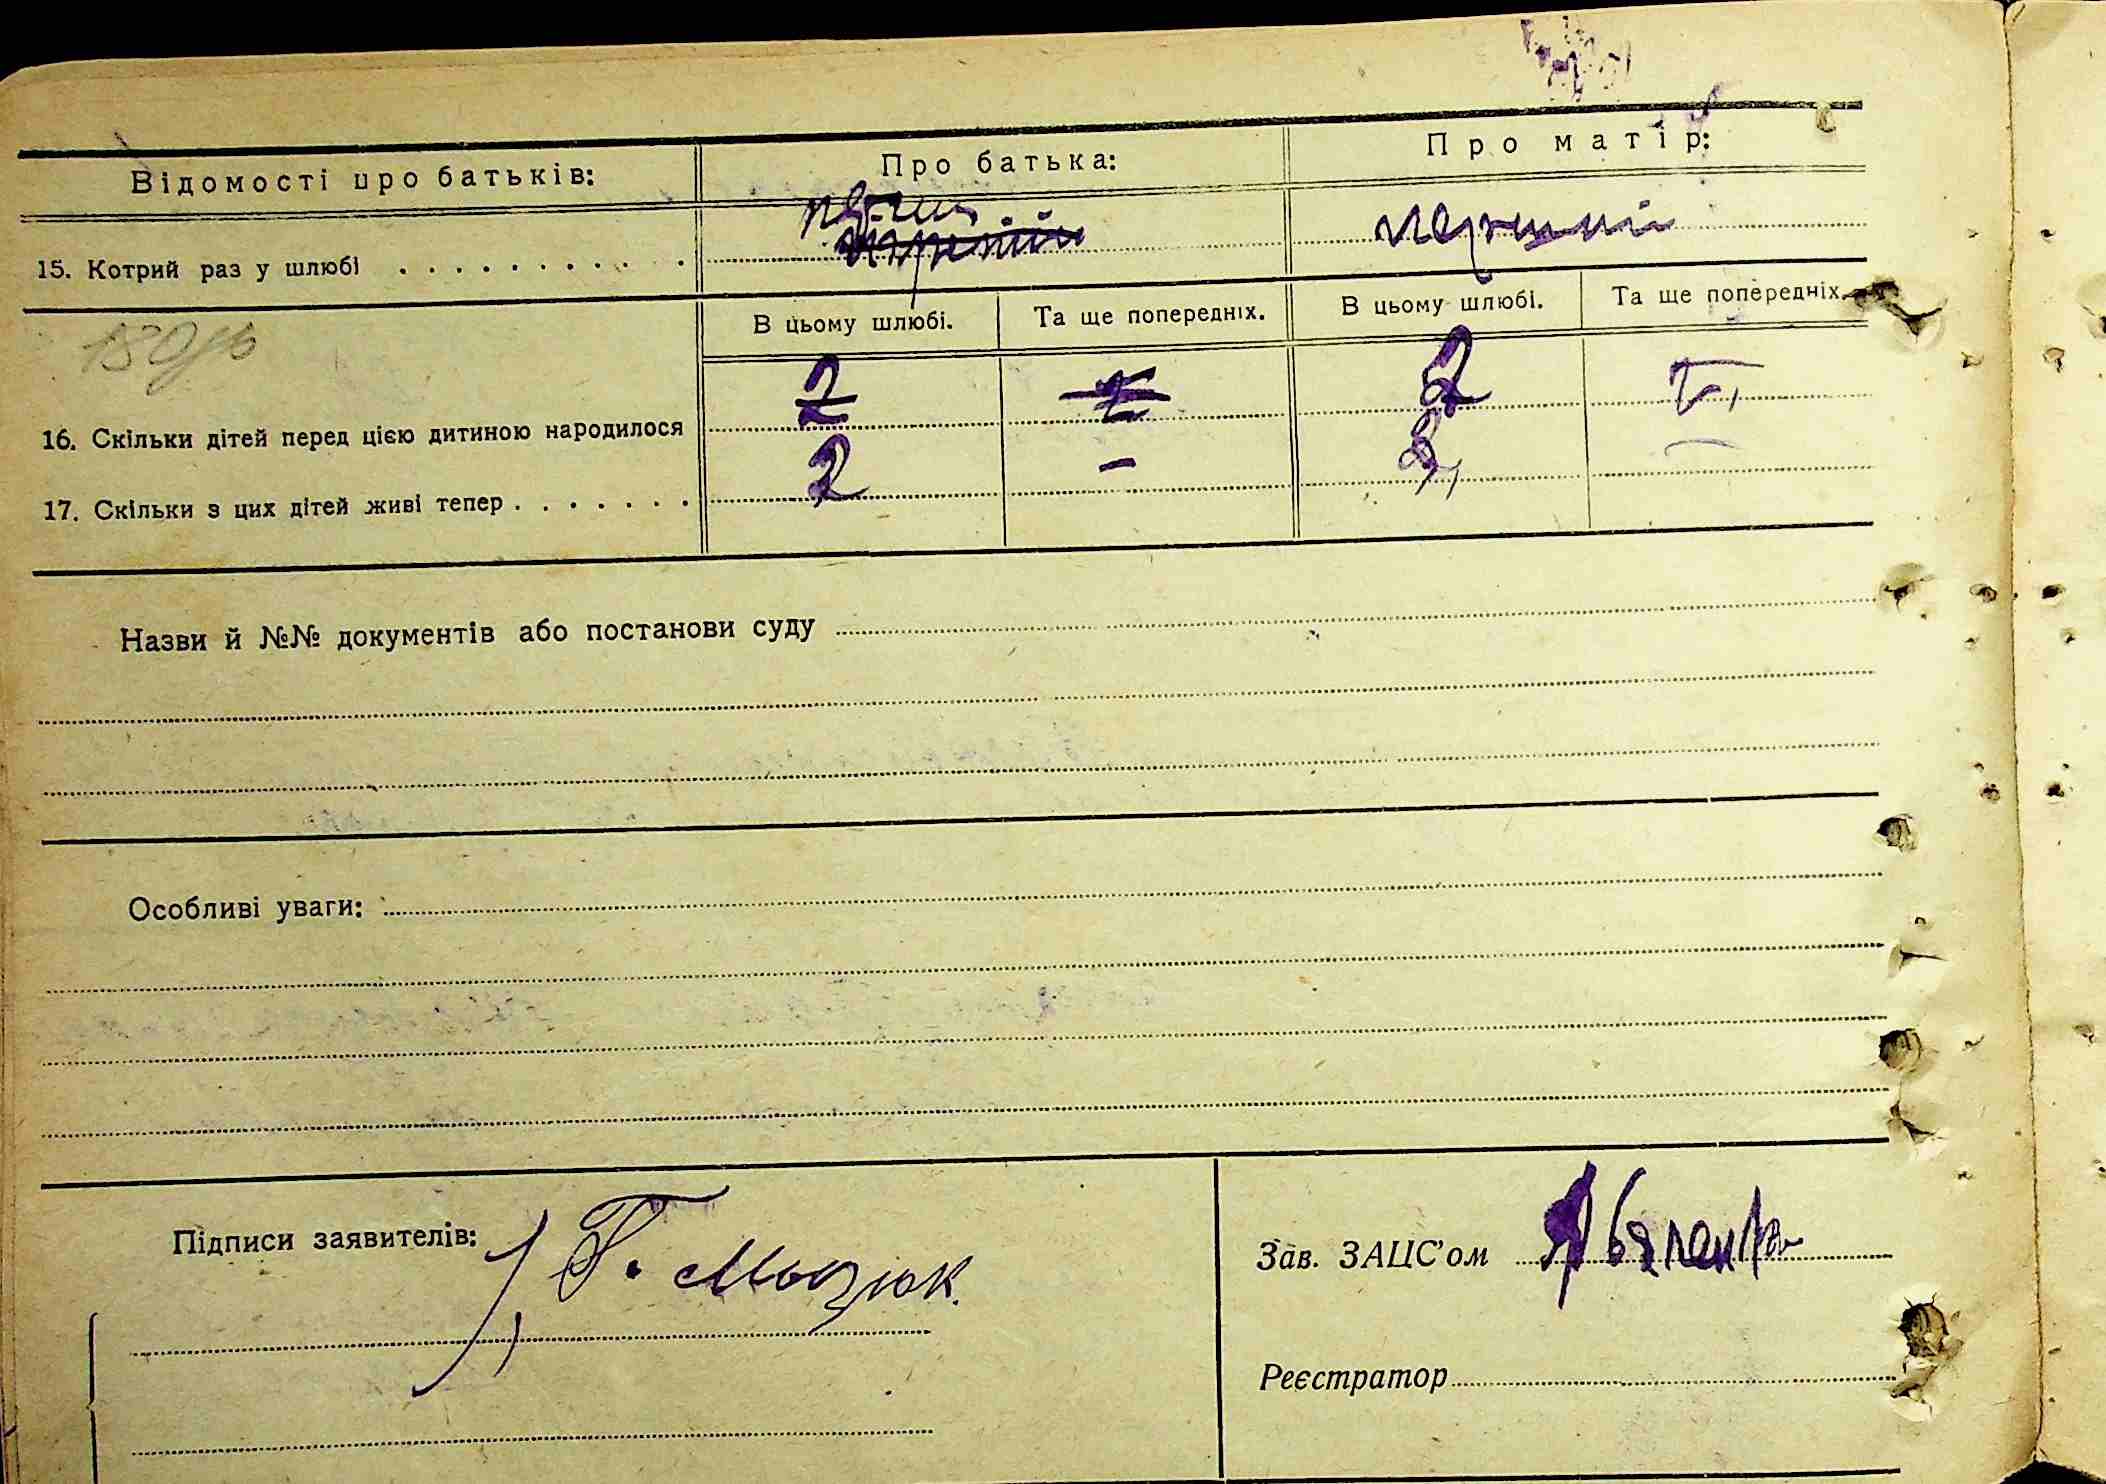 Відомості про батьків: Про батька: Про матір:
15. Котрий раз у шлюбі перший
В цьому шлюбі. Та ще попередніх. В цьому шлюбі. Та ще попередніх.
16. Скільки дітей перед цією дитиною народилося 2 2
17. Скільки з цих дітей живі тепер 2 – 2 –
Назви й №№ документів або постанови суду
Особливі уваги:
Підписи заявителів: Г. Мазюк.
Зав. ЗАЦС’ом
Реєстратор